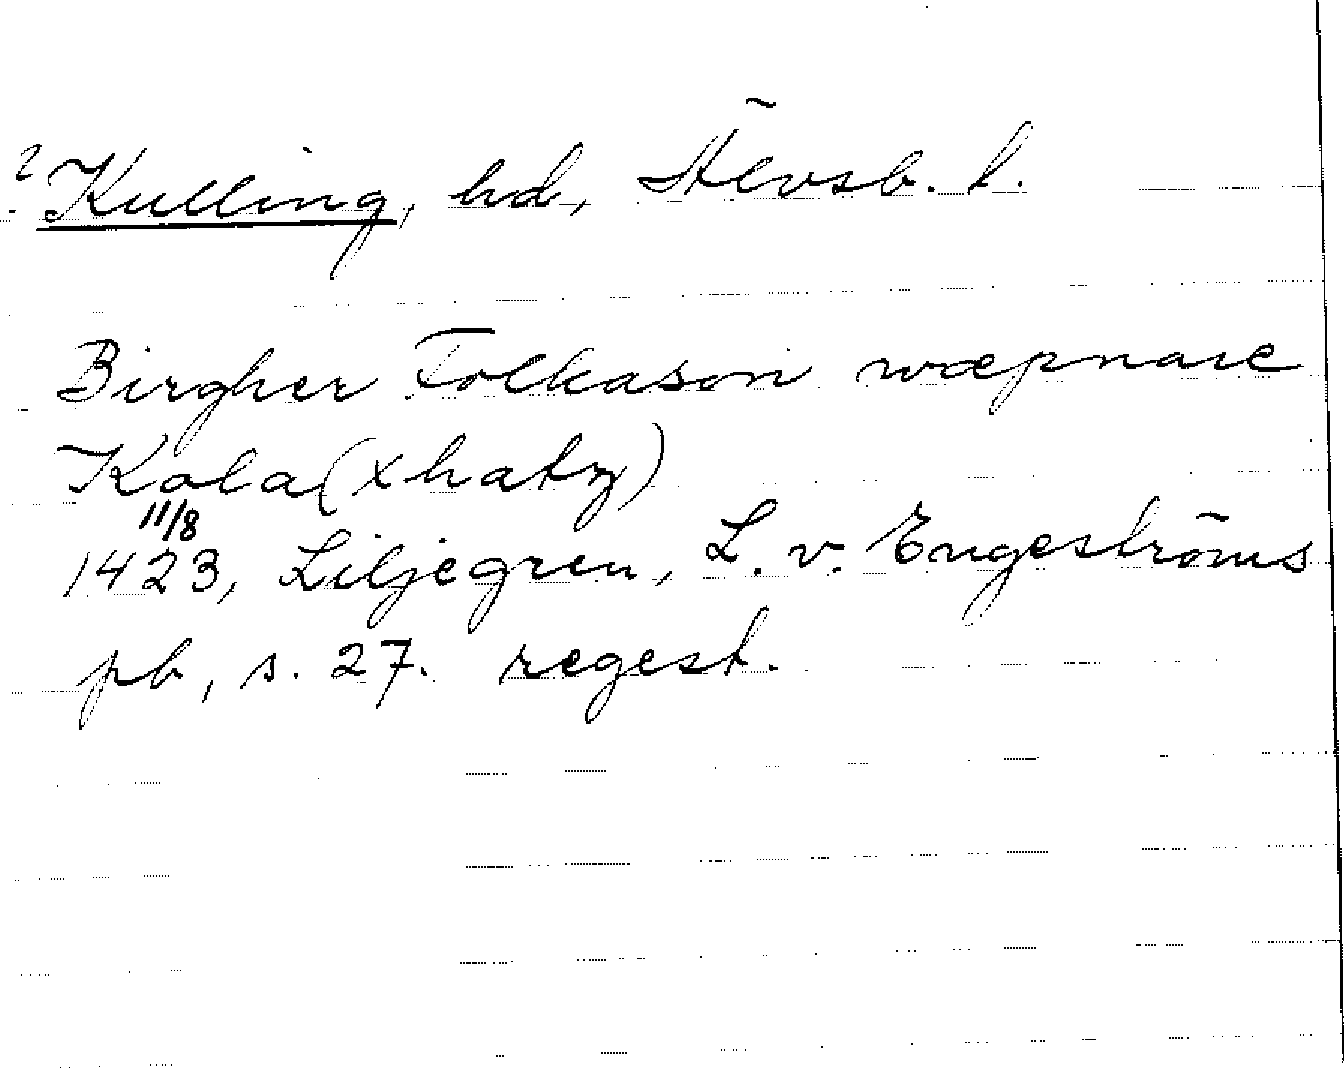 ? Kulling, hd, Älvsb. l.
Birgher Folkason wæpnare
Kola (x hatz)
11/8
1423, Liljegren, L. v. Engeströms
pb, s. 27. regest.